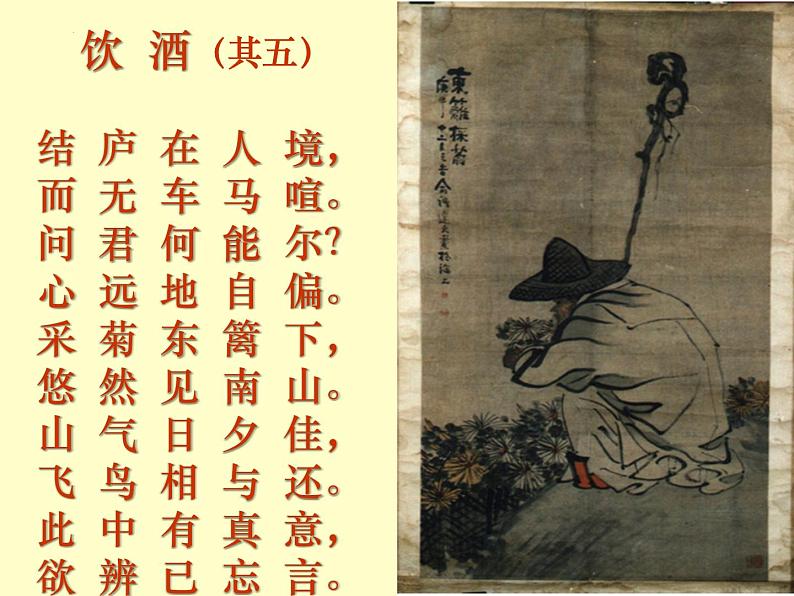 饮酒（其五）
结庐在人境，
而无车马喧。
问君何能尔？
心远地自偏。
采菊东篱下，
悠然见南山。
山气日夕佳，
飞鸟相与还。
此中有真意，
欲辨已忘言。
東籬採菊